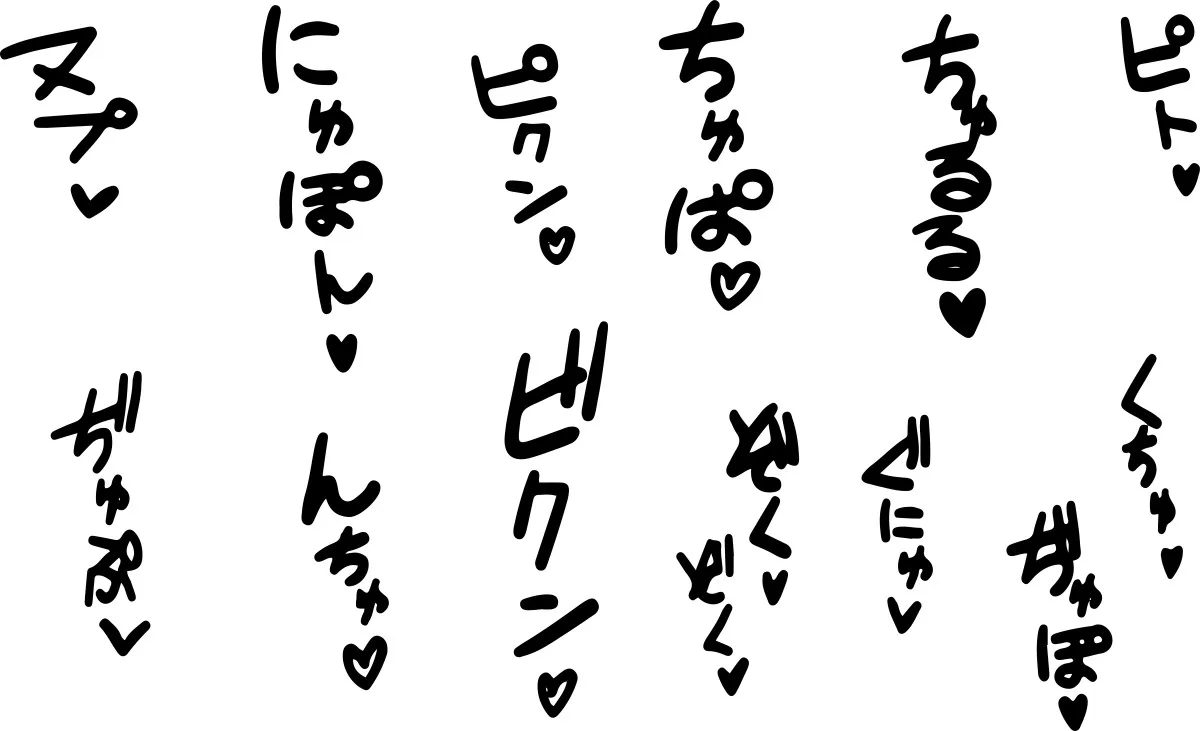 ピィ♥
ちゅるる♥
ちゅぱ♡
ピクン♡
にゅぽん♥
マペ♥
くちゅ♥
ぢゅぽ♥
ぐにゅ♥
ぞく♥
ぞく♥
ビクン♡
んちゅ♡
ぢゅぷ♥